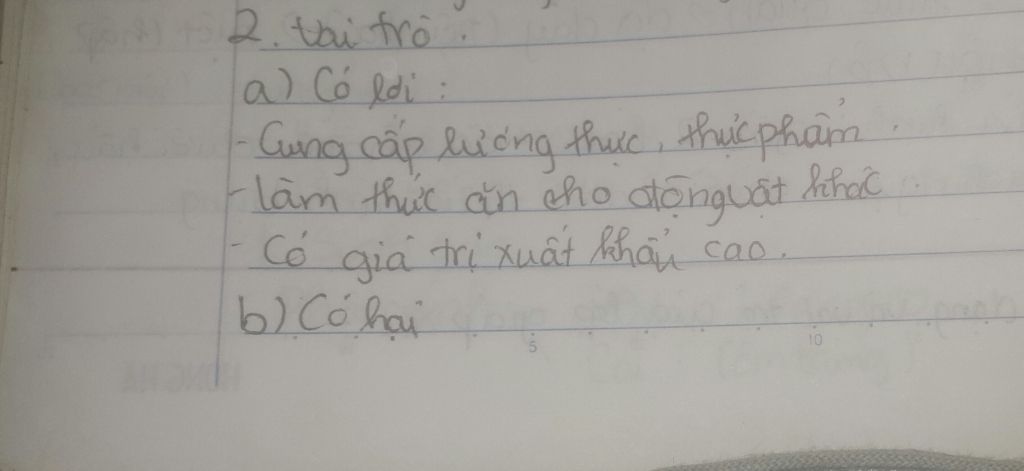 2. Vai trò.
a) Có lợi:
- Cung cấp lương thực, thực phẩm.
- làm thức ăn cho động vật khác.
- Có giá trị xuất khẩu cao.
b) Có hại
5 10